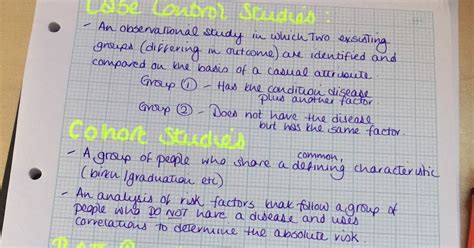 Case Control Studies:
- An observational study in which Two exsisting
groups (differing in outcome) are identified and
compared on the basis of a casual attribute
Group ① - Has the condition disease
plus another factor.
Group ② - Does not have the disease
but has the same factor.
Cohort Studies
common,
- A group of people who share a defining characteristic
(biren /graduation etc)
- An analysis of risk factors that follow a group of
people who DO NOT have a disease and uses
correlations to determine the absolute risk